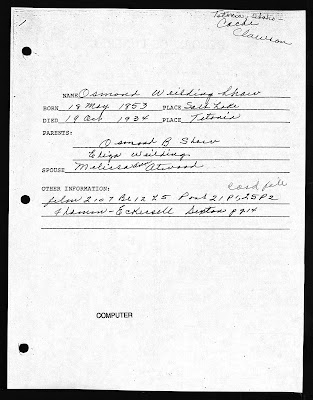 Tetonia, Idaho -
Cache
Clawson
NAME Osmond Weilding Shaw
BORN 18 May 1953 PLACE Salt Lake
DIED 19 Oct 1934 PLACE Tetonia
PARENTS:
Osmond B Shaw
Eliza Weilding
SPOUSE Melissa Ann Atwood
OTHER INFORMATION:
card file
film 2107 Bk 12 25 Part 21 P 25 P2
Flamm-Eckersell Sexton p 914
COMPUTER